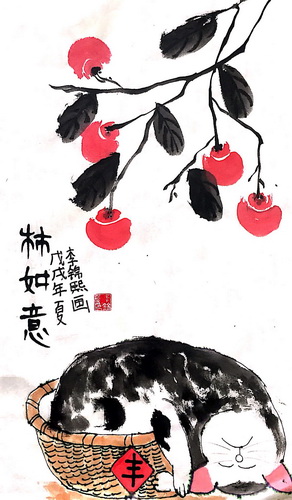 柿如意
戊戌年夏
李锦熙画
丰